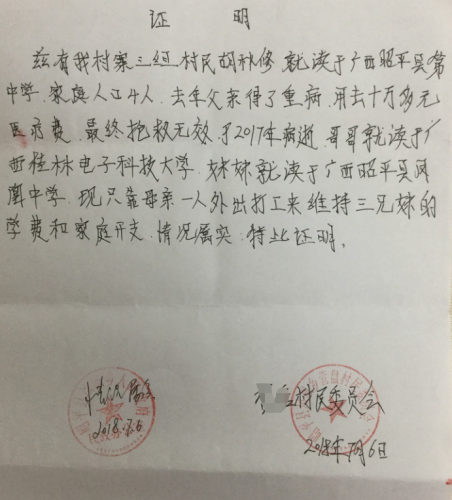 证 明
兹有我村寨三组村民胡 修就读于广西昭平县第
中学.家庭人口4人.去年父亲得了重病.用去十万多元
医疗费.最终抢救无效.于2017年病逝.哥哥就读于广
西桂林电子科技大学.妹妹就读于广西昭平县凤
凰中学.现只靠母亲一人外出打工来维持三兄妹的
学费和家庭开支.情况属实.特此证明.
情况属实
2018.7.6
村民委员会
2018年7月6日